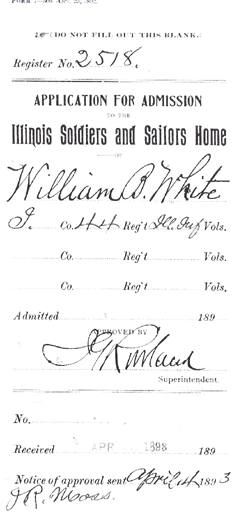 (DO NOT FILL OUT THIS BLANK.)
Register No. 2518.
APPLICATION FOR ADMISSION
TO THE
Illinois Soldiers and Sailors Home
OF
William B. White
I. Co. 44 Reg't Ill. Inf Vols.
Co. Reg't Vols.
Co. Reg't Vols.
Admitted 189
APPROVED BY
Superintendent.
No.
Received APR 1893 189
Notice of approval sent April 4 1893
J.R. Moss.